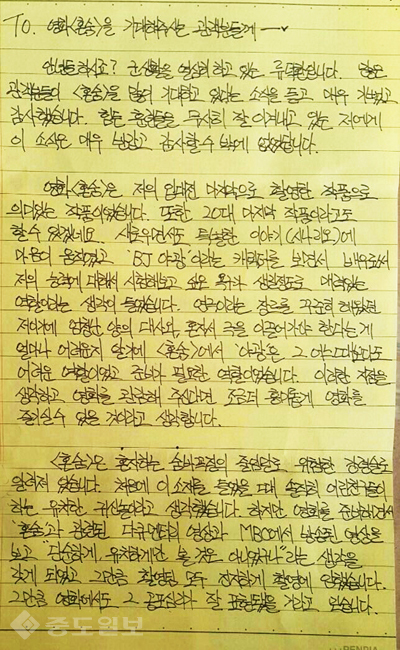 TO. 영화<혼숨>을 기대해주시는 관객분들께
안녕들하시죠? 군생활을 열심히하고 있는 류덕환입니다. 많은
관객분들이 <혼숨>을 많이 기대하고 있다는 소식을 듣고 매우 기쁘고
감사했습니다. 힘든 훈련들을 무사히 잘 이겨내고 있는 저에게
이 소식은 매우 반갑고 감사할 수 밖에 없었답니다.
영화<혼숨>은 저의 입대전 마지막으로 촬영한 작품으로
의미있는 작품이었습니다. 또한 20대 마지막 작품이라고도
할 수 있겠네요. 새로우면서도 독특한 이야기(시나리오)에
마음이 움직였고 'BJ 야광'이라는 캐릭터를 보면서 배우로써
저의 능력에 대해서 시험해보고 싶은 욕구가 생길정도로 매력있는
역할이라는 생각이 들었습니다. 연극이라는 장르를 꾸준히 해왔던
저이기에 엄청난 양의 대사와, 혼자서 극을 이끌어가야 한다는 게
얼마나 어려운지 알기에 <혼숨>에서 '야광'은 그 어느때보다도
어려운 역할이었고 준비가 필요한 역할이었습니다. 이러한 지점을
생각하고 영화를 관람해 주신다면 조금더 흥미롭게 영화를
즐기실 수 있을 것이라고 생각합니다.
<혼숨>은 혼자하는 숨바꼭질의 줄임말로 위험한 강령술로
알려져 있습니다. 처음에 이 소재를 들었을 때 솔직히 어린친구들이
하는 유치한 귀신놀이라고 생각했습니다. 하지만 영화를 준비하면서
'혼숨'과 관련된 다큐멘터리 영상과 MBC에서 방송된 영상을
보고 "단순하게 유치하게만 볼 것은 아니었구나"라는 생각을
갖게 되었고 그만큼 촬영땐 모두 진지하게 촬영에 임했습니다.
그만큼 영화에서도 그 공포심리가 잘 표현됐을 거라고 믿습니다.
중도일보